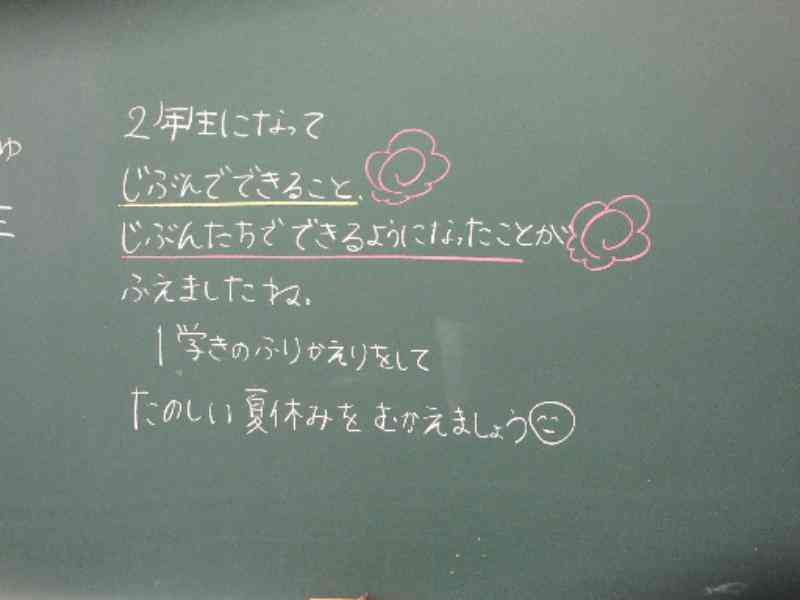 2年生になって
じぶんでできること、
じぶんたちでできるようになったことが
ふえましたね。
1学きのふりかえりをして
たのしい夏休みをむかえましょう
ゅ